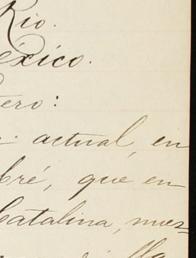 Rio.
éxico.
tero:
actual, en
bré, que en
Catalina, mues-